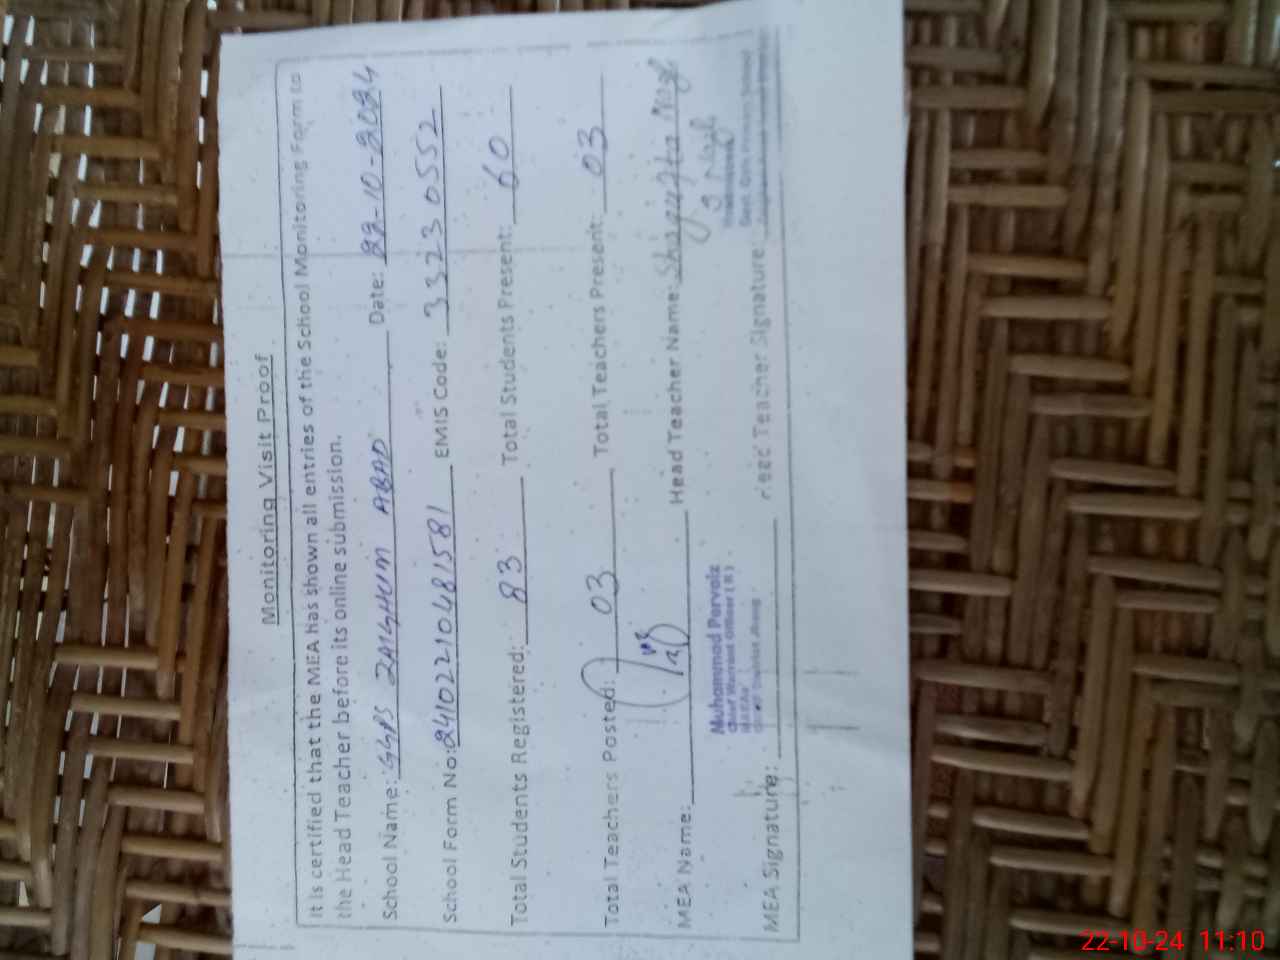 Monitoring Visit Proof
It is certified that the MEA has shown all entries of the School Monitoring Form to
the Head Teacher before its online submission.
School Name: GGPS ZAIGHUM ABAD Date: 22-10-2024
School Form No: 2410221048 1581 EMIS Code: 33230552
Total Students Registered: 83 Total Students Present: 60
Total Teachers Posted: 03 Total Teachers Present: 03
MEA Name: Head Teacher Name: Shagufta Naz
Muhammad Pervaiz
Chief Warrant Officer (R)
MEA Signature: Head Teacher Signature:
22-10-24 11:10